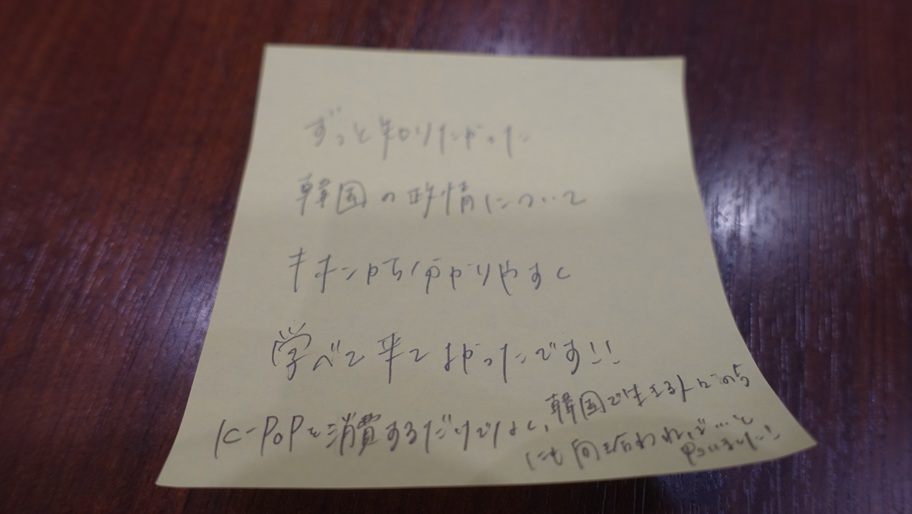 ずっと知りたかった
韓国の政情について
キホンから分かりやすく
学べて来てよかったです!!
K-POPを消費するだけでなく、韓国で生きる人たちのいのち
にも向き合わねば…と
思いました!